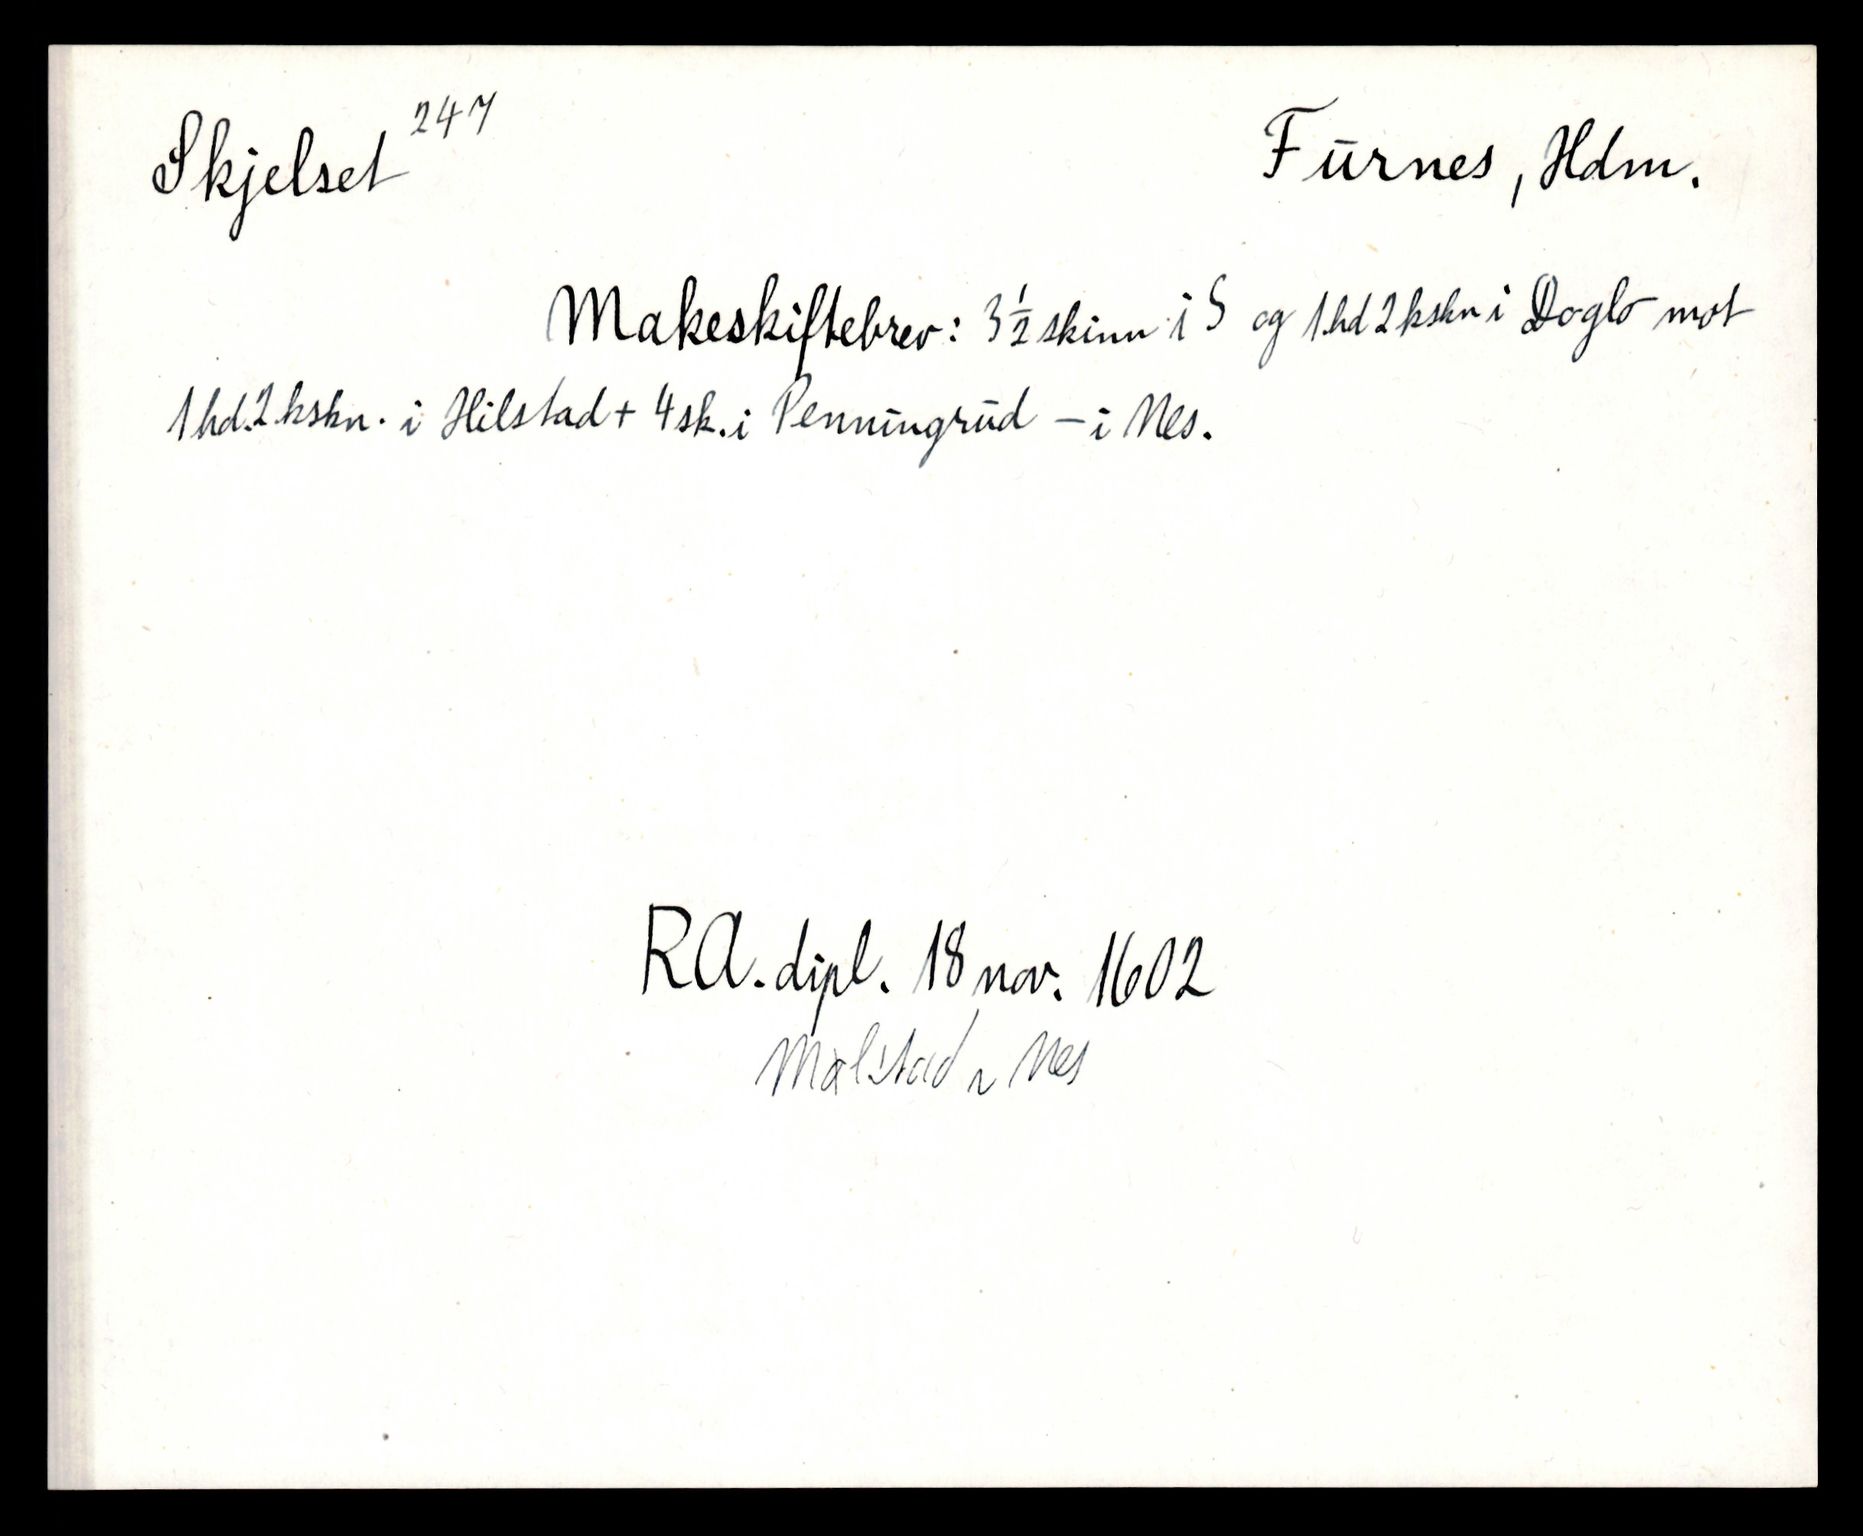 Skjelset 247 Furnes, Hdm.
Makeskiftebrev: 3 1/2 skinn i S og 1 hd 2 kskn i Doglo mot
1 hd. 2 kskn. i Hilstad + 4 sk. i Penningrud - i Nes.
RA. dipl. 18 nov. 1602
Målstad, Nes